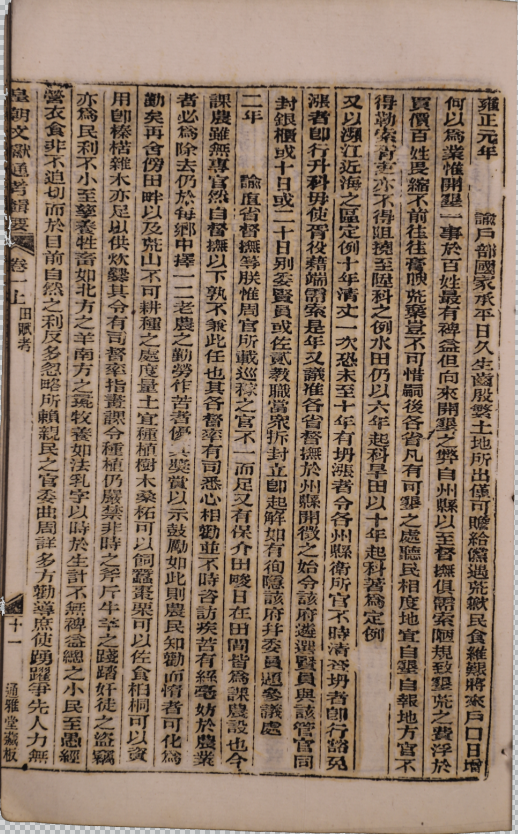 雍正元年　諭戶部國家承平日久生齒殷繁土地所出僅可贍給儻遇荒歉民食維艱將來戶口日增
何以為業惟開墾一事於百姓最有裨益但向來開墾之弊自州縣以至督撫俱需索陋規致墾荒之費浮於
買價百姓畏縮不前往往膏腴荒棄豈不可惜嗣後各省凡有可墾之處聽民相度地宜自墾自報地方官不
得勒索胥吏亦不得阻撓至陞科之例水田仍以六年起科旱田以十年起科著為定例
又以瀕江近海之區定例十年清丈一次恐未至十年有坍漲者令各州縣衛所官不時清查坍者即行豁免
漲者即行升科毋使胥役藉端需索是年又議准各省督撫於州縣開徵之始令該府遴選賢員與該管官同
封銀櫃或十日或二十日別委賢員或佐貳教職當衆拆封立即起解如有徇隱該府幷委員題參議處
二年　諭直省督撫等朕惟周官所載巡稼之官不一而足又有保介田畯日在田間皆為課農設也今
課農雖無專官然自督撫以下孰不兼此任也其各督率有司悉心相勸並不時咨訪疾苦有絲毫妨於農業
者必為除去仍於每鄉中擇一二老農之勤勞作苦者優其獎賞以示鼓勵如此則農民知勸而惰者可化為
勤矣再舍傍田畔以及荒山不可耕種之處度量土宜種植樹木桑柘可以飼蠶棗栗可以佐食柏桐可以資
用即榛楛雜木亦足以供炊爨其令有司督率指畫課令種植仍嚴禁非時之斧斤牛羊之踐踏奸徒之盜竊
亦為民利不小至孳養牲畜如北方之羊南方之彘牧養如法乳字以時於生計不無裨益總之小民至愚經
營衣食非不迫切而於目前自然之利反多忽略所賴親民之官委曲周詳多方勸導庶使踴躍爭先人力無
皇朝文獻通考輯要　卷一上　田賦考　十一　通雅堂藏板